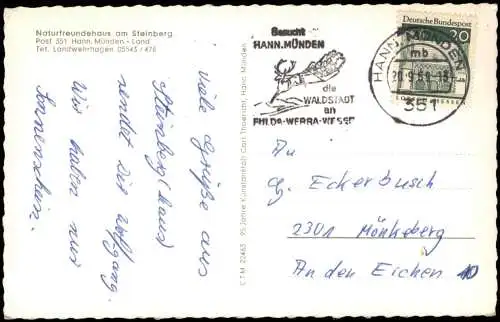 Naturfreundehaus am Steinberg
Post 351 Hann. Münden - Land
Tel. Landwehrhagen 05543 / 476
viele Grüße aus
Steinberg (Haus)
sendet Dir Wolfgang.
Wir haben nur
Sonnenschein.
C.T.M. 22463 95 Jahre Kunstanstalt Carl Thoericht, Hann. Münden
Besucht
HANN.MÜNDEN
die
WALDSTADT
an
FULDA-WERRA-WESER
HANN. MÜNDEN
mb
20.9.68-18
351
Deutsche Bundespost
20
An
G. Eckerbusch
2301 Mönkeberg
An den Eichen 10